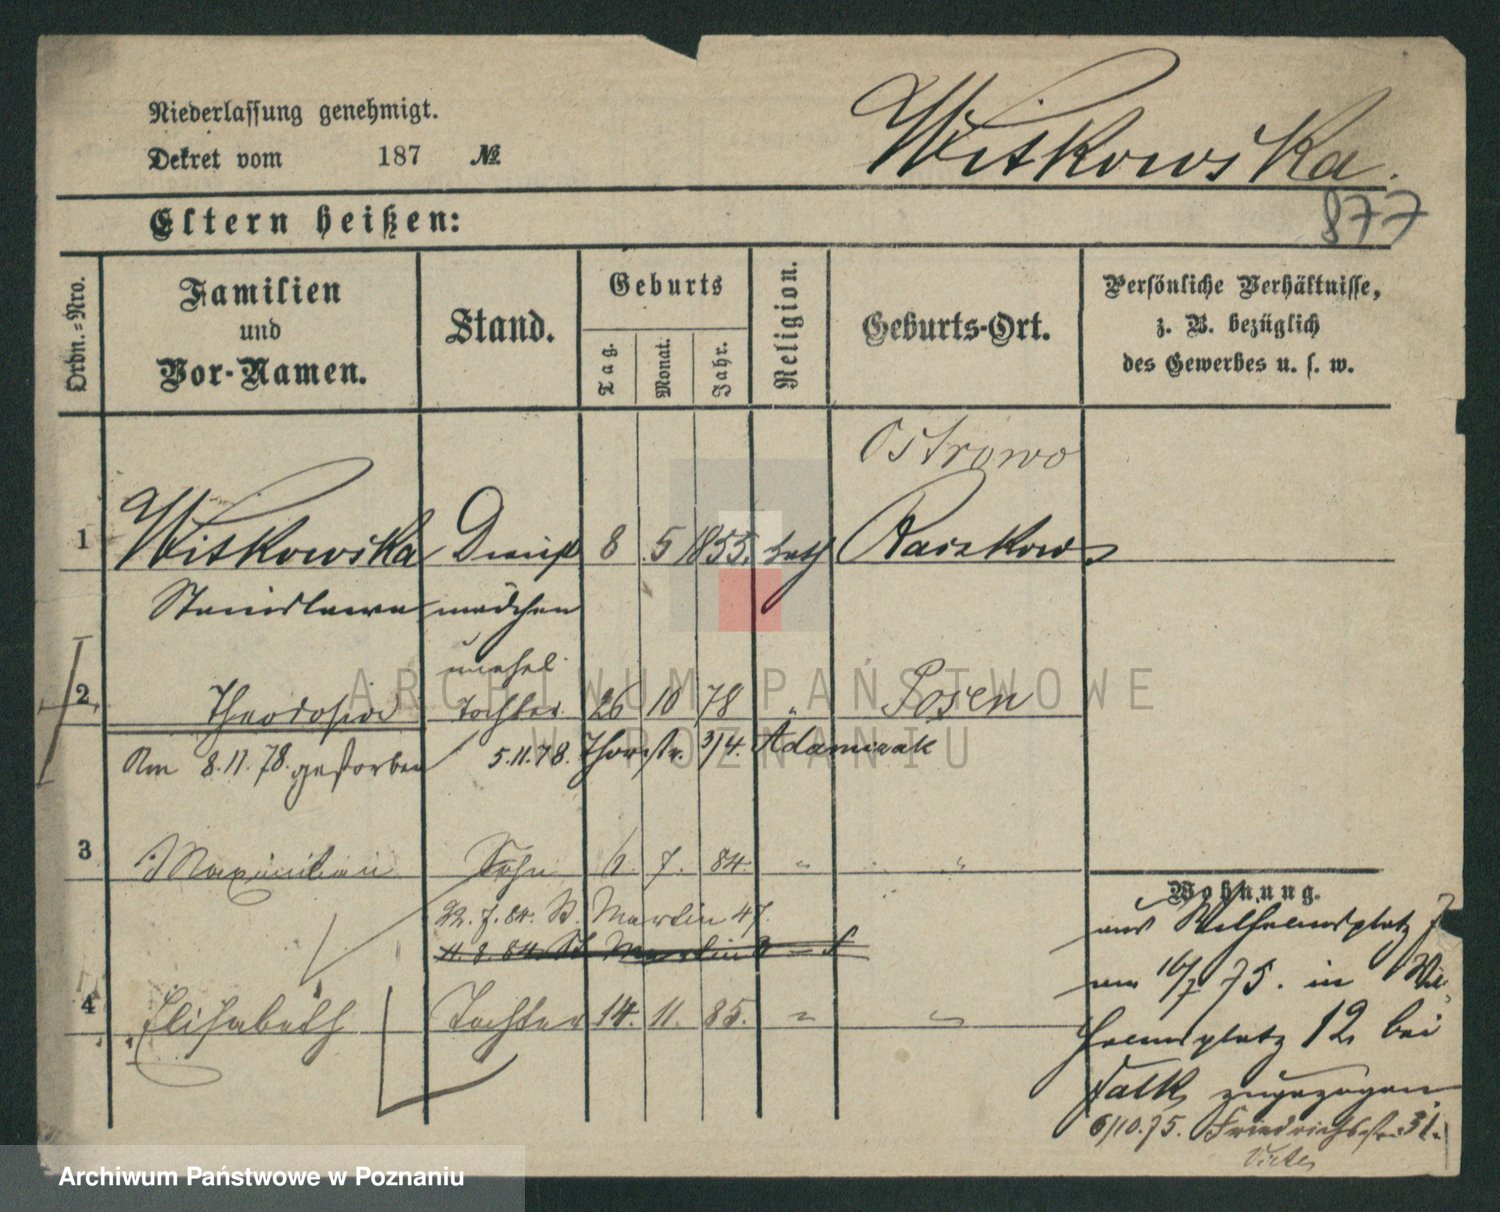 Niederlassung genehmigt.
Dekret vom 187 №
Witkowska.
877
Eltern heißen:
Ordn.=Nro.
Familien
und
Vor-Namen.
Stand.
Geburts
Tag.
Monat.
Jahr.
Religion.
Geburts-Ort.
Persönliche Verhältnisse,
z. B. bezüglich
des Gewerbes u. s. w.
Ostrowo
1 Witkowska Dienst 8 5 1855. kath Raszkow
Stanislawa mädchen
unehel
2 Theodosia Tochter 26 10 78 " Posen
Am 8.11.78. gestorben 5.11.78. Thorstr. 3/4. Adamczak
3 Maximilian Sohn 7. 84. " "
22.7.84. St. Martin 47.
11.8.84. St Martin
4 Elisabeth Tochter 14. 11. 85. " "
Wohnung.
aus Wilhelmsplatz 7
am 16/7 75. in Wil-
helmsplatz 12 bei
Falk zugezogen
6/10.75. Friedrichstr. 31.
ARCHIWUM PAŃSTWOWE
W POZNANIU
Archiwum Państwowe w Poznaniu